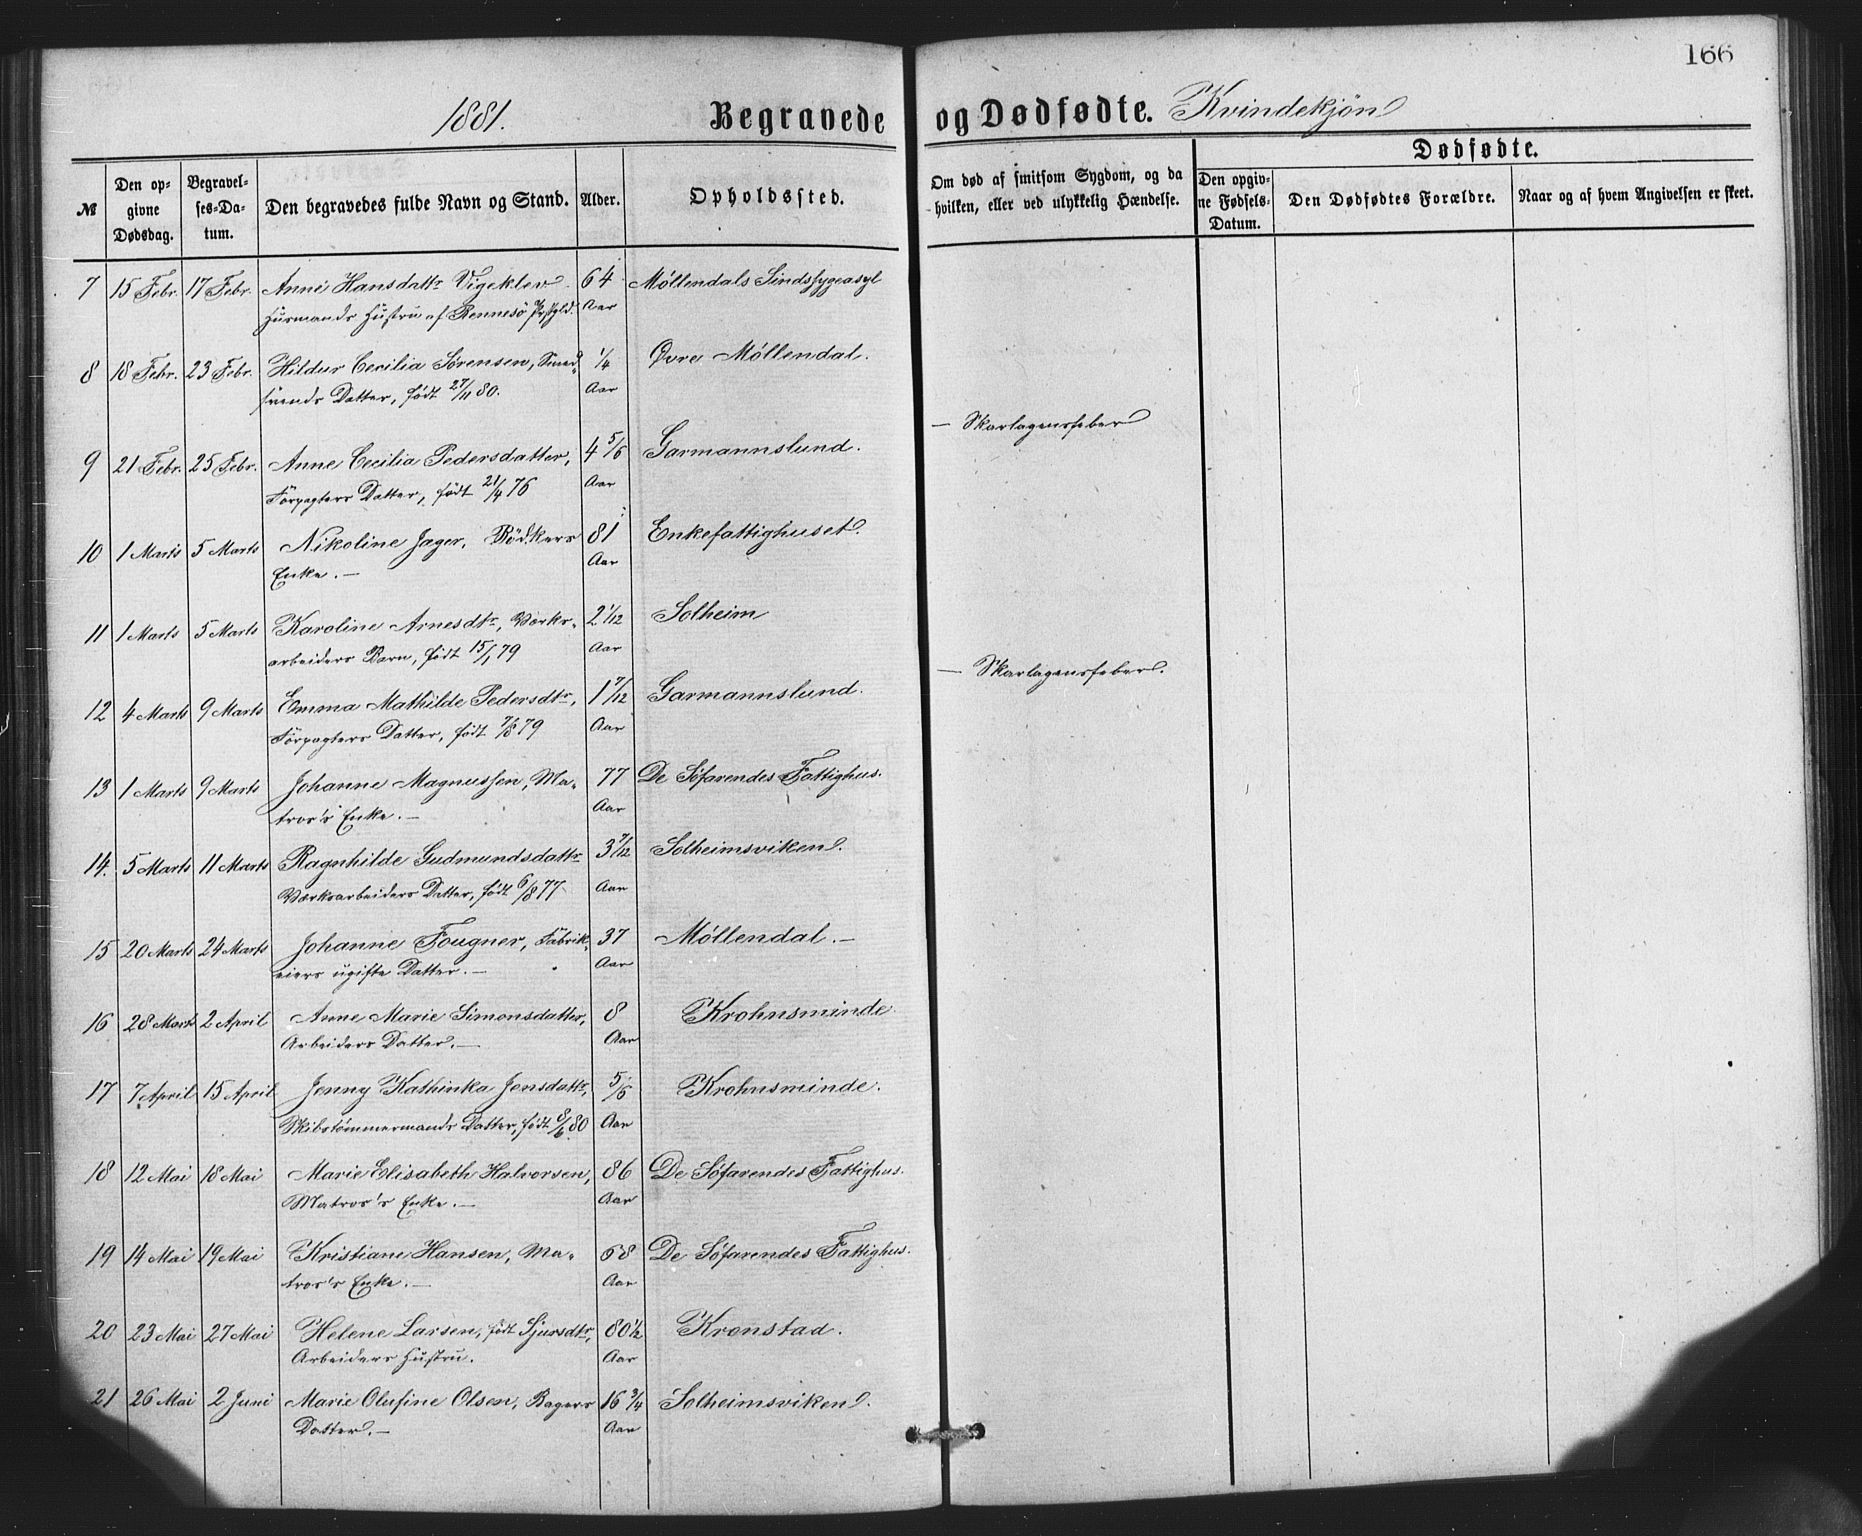 166
1881. Begravede og Dødfødte. Kvindekjøn
№
Den opgivne Dødsdag.
Begravelses-Datum.
Den begravedes fulde Navn og Stand.
Alder.
Opholdssted.
Om død af smitsom Sygdom, og da hvilken, eller ved ulykkelig Hændelse.
Dødfødte.
Den opgivne Fødsels-Datum.
Den Dødfødtes Forældre.
Naar og af hvem Angivelsen er skeet.
7 15 Febr. 17 Febr. Anne Hansdattr Vigeklev. 64 Møllendals Sindssygeasyl
Husmands Hustru af Rennesö Aar
8 18 Febr. 23 Febr. Hildur Cecilia Sørensen, Smed- 1/4 Øvre Møllendal.
svends Datter, født 27/11 80. Aar
9 21 Febr. 25 Febr. Anne Cecilia Pedersdatter, 4 5/6 Garmannslund. — Skarlagensfeber
Forpagters Datter, født 21/4 76 Aar
10 1 Marts 5 Marts Nikoline Jager, Bødkers 81 Enkefattighuset.
Enke. — Aar
11 1 Marts 5 Marts Karoline Arnesdtr, Værks- 2 1/12 Solheim
arbeiders Barn, født 15/1 79 Aar
12 4 Marts 9 Marts Emma Mathilde Pedersdtr, 1 7/12 Garmannslund. — Skarlagensfeber.
Forpagters Datter, født 7/8 79 Aar
13 1 Marts 9 Marts Johanne Magnussen, Ma- 77 De Söfarendes Fattighus.
tros's Enke. — Aar
14. 5 Marts 11 Marts Ragnhilde Gudmundsdattr 3 7/12 Solheimsviken.
Værksarbeiders Datter, født 6/8 77 Aar
15 20 Marts 24 Marts Johanne Fougner, Fabrik- 37 Møllendal. —
eiers ugifte Datter. — Aar
16 28 Mart 2 April Anne Marie Simonsdatter, 8 Krohnsminde
Arbeiders Datter. — Aar
17 7 April 15 April Jenny Kathinka Jensdattr, 5/6 Krohnsminde.
Skibstømmermands Datter, født 8/6 80 Aar
18 12 Mai 18 Mai Marie Elisabeth Halvorsen, 86 De Söfarendes Fattighus.
Matros's Enke. — Aar
19 14 Mai 19 Mai Kristiane Hansen, Ma- 68 De Söfarendes Fattighus.
tros's Enke. — Aar
20 23 Mai 27 Mai Helene Larsen, født Sjursdtr, 80 1/2 Kronstad.
Arbeiders Hustru. Aar
21 26 Mai 2 Juni Marie Olufine Olsen, Bagers 16 3/4 Solheimsviken.
Datter. — Aar